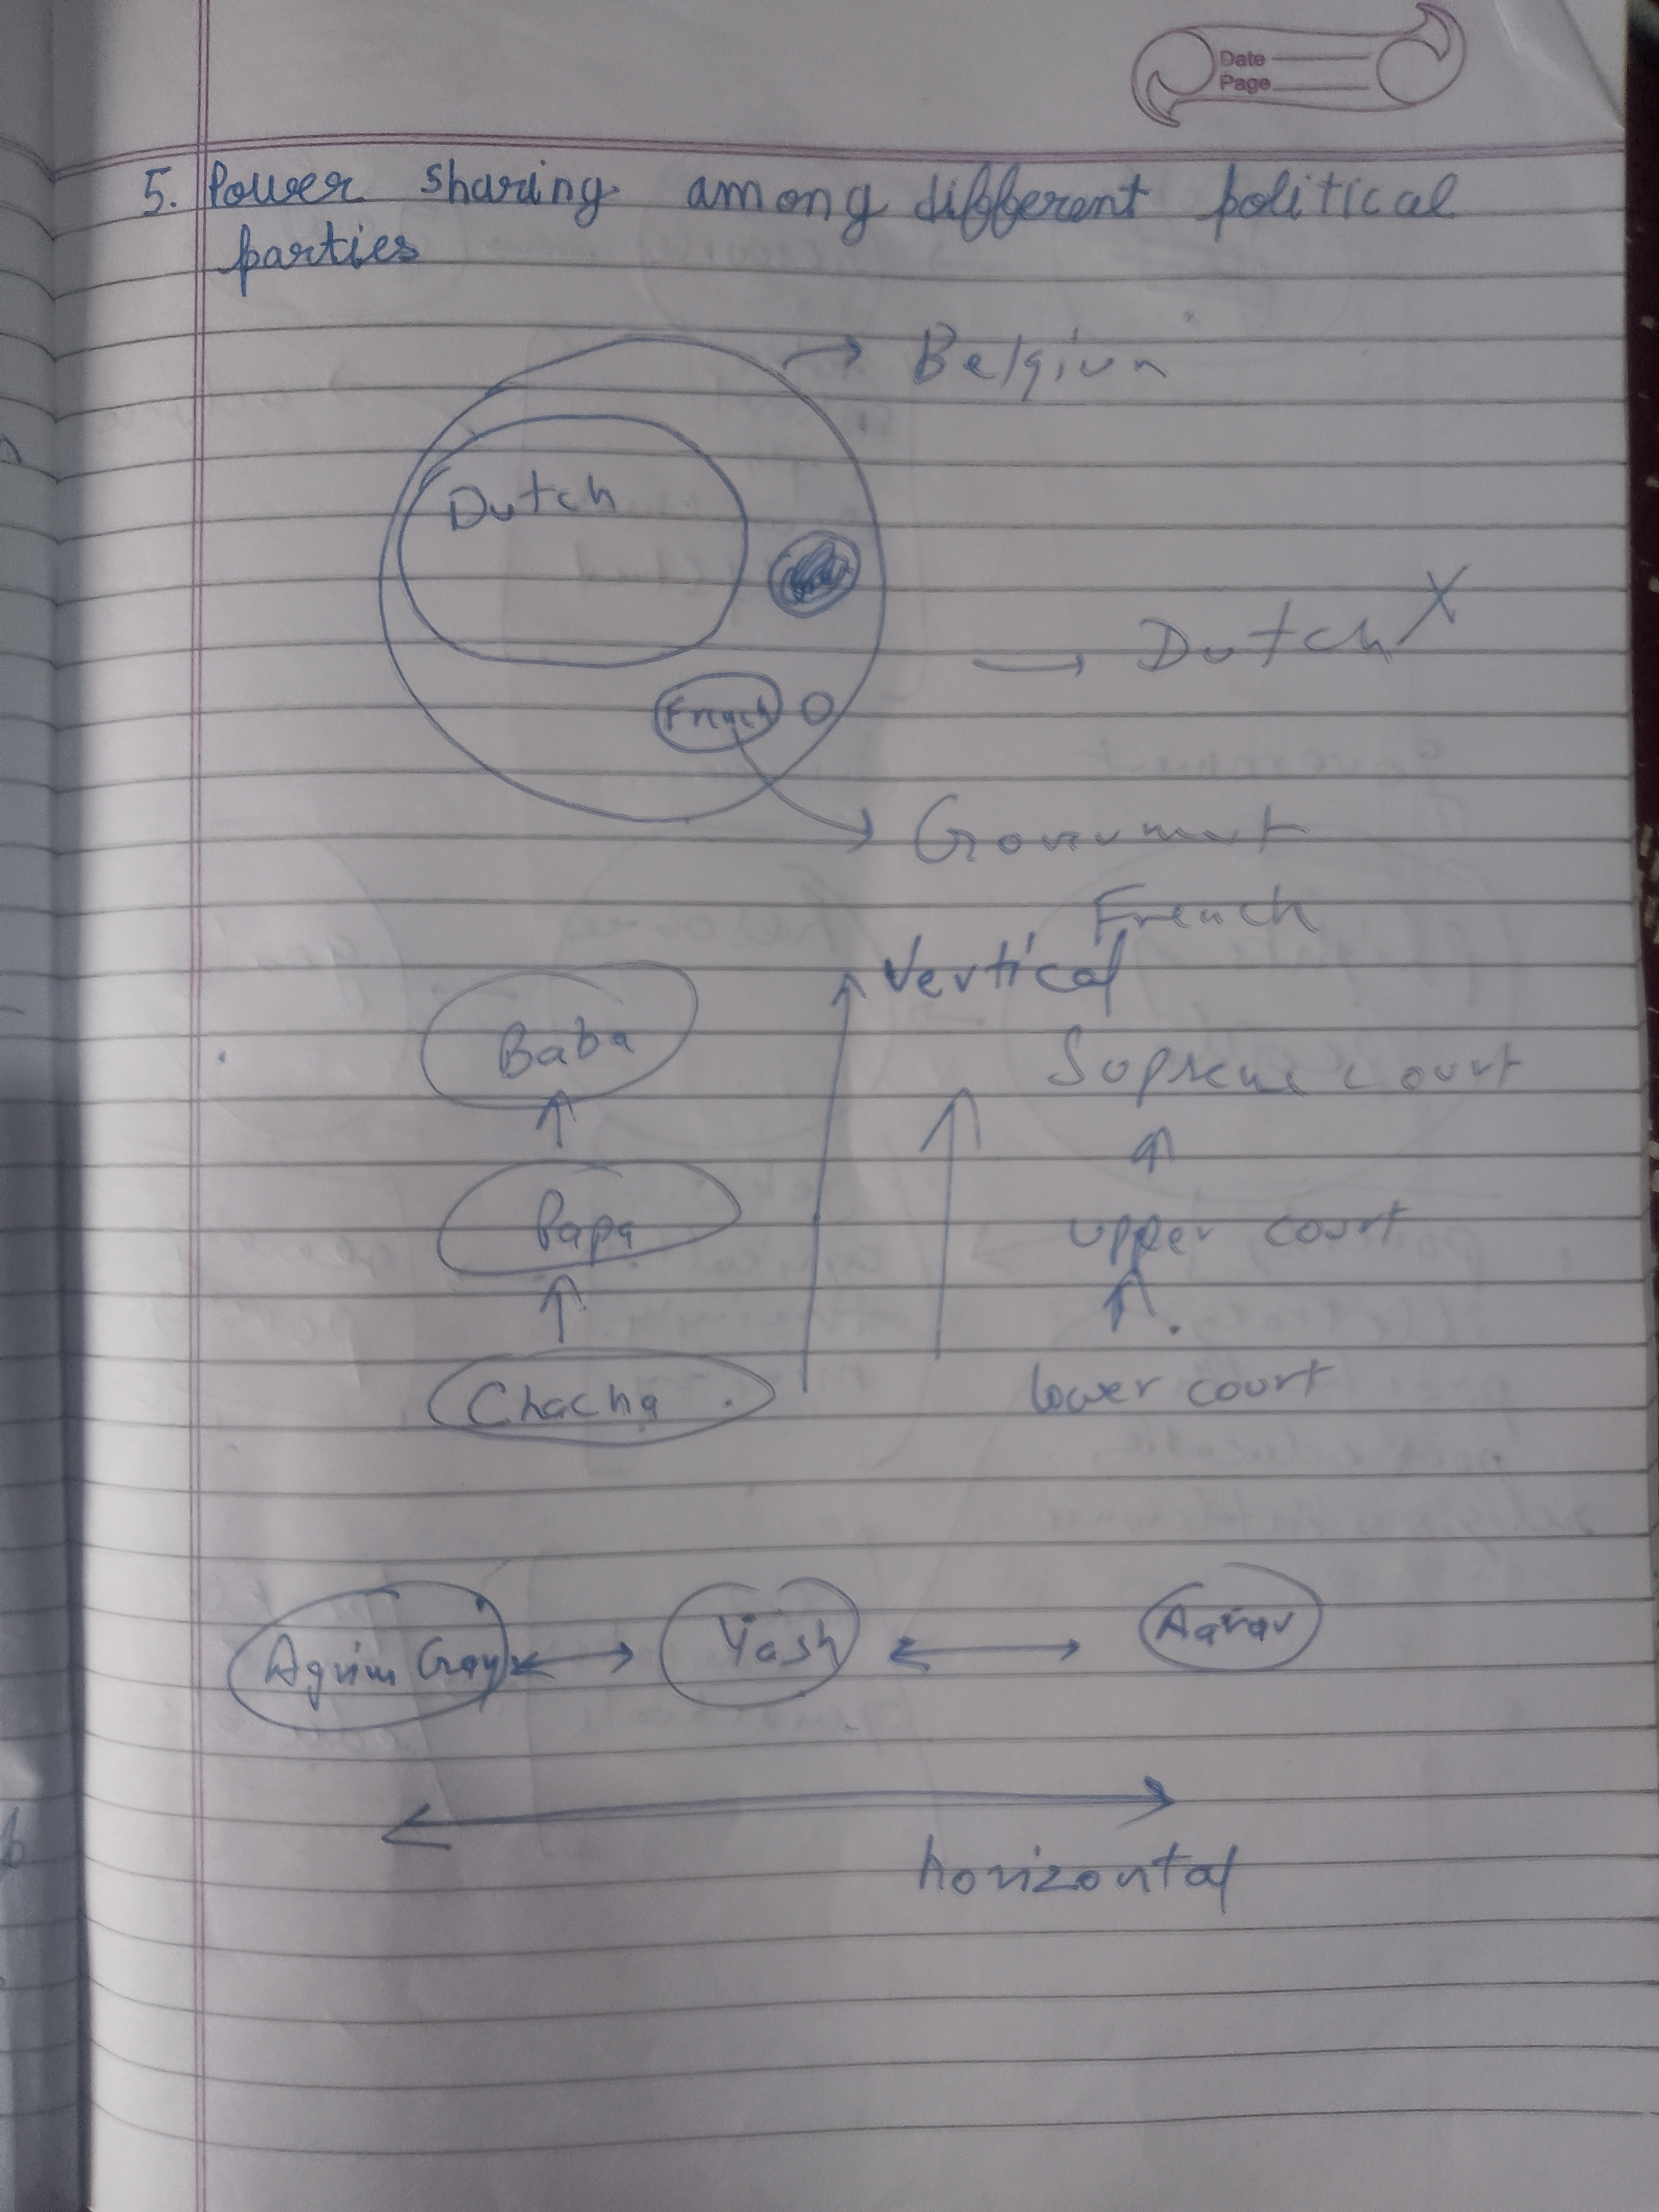 Date
Page
5. Power sharing among different political
parties
Belgium
Dutch
Dutch X
French
Goverment
French
Vertical
Baba
Supreme court
Papa
upper court
Chacha
lower court
Yash
Aarav
horizontal